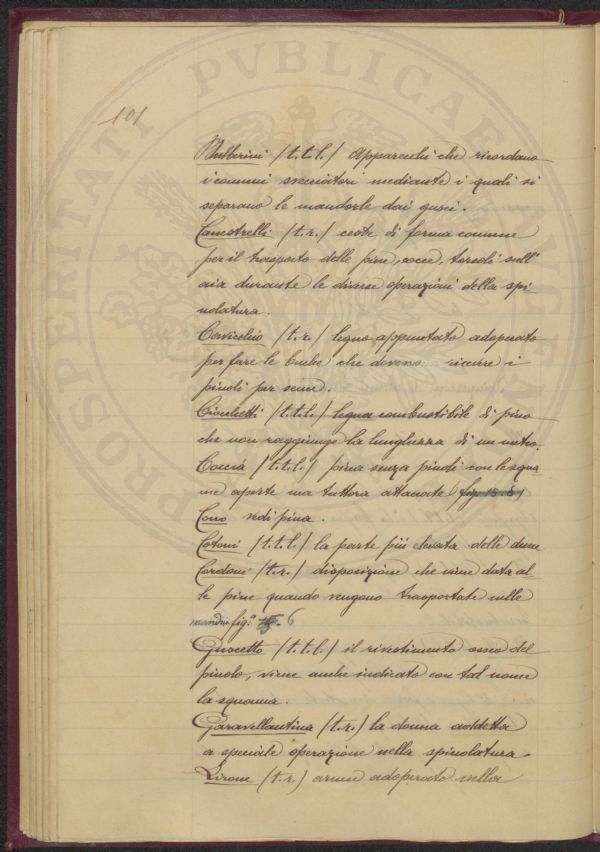 101
PVBLICAE
PROSPERITATI
Bulberini (t.t.l.) Apparecchi che ricordano
i comuni svecciatori mediante i quali si
separano le mandorle dai gusci.
Canestrelli (t.r.) ceste di forma comune
per il trasporto delle pine, cocce, torsoli sull'
aia durante le diverse operazioni della spi
nolatura.
Cavicchio (t.r.) legno appuntato adoperato
per fare le buche che devono ricevere i
pinoli per seme.
Ciocchetti (t.t.l.) legna combustibile di pino
che non raggiunge la lunghezza di un metro.
Coccia (t.t.l.) pina senza pinoli con le squa
me aperte ma tuttora attaccate (fig. 15. 6)
Cono vedi pina.
Cotoni (t.t.l.) la parte più elevata delle dune
Cordoni (t.r.) disposizione che viene data al
le pine quando vengono trasportate nelle
fig.ª 6
Guscetto (t.t.l.) il rivestimento osseo del
pinolo, viene anche indicato con tal nome
la squama.
Garavellantina (t.r.) la donna addetta
a speciale operazione nella spinolatura.
Lirone (t.r.) arnese adoperato nella